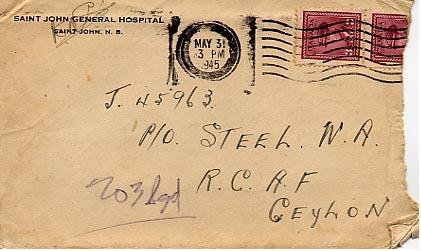 SAINT JOHN GENERAL HOSPITAL
SAINT JOHN, N. B.
MAY 31
3 PM
1945
J. 45963.
P/O STEEL. W.A.
R.C.A.F
CEYLON
203 Sqd